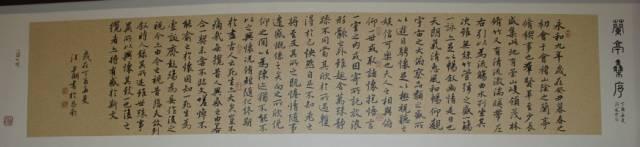 蘭亭集序
永和九年歲在癸丑暮春之
初會于會稽山陰之蘭亭
脩稧事也羣賢畢至少長
咸集此地有崇山峻領茂林
脩竹又有清流激湍暎帶左
右引以為流觴曲水列坐其
次雖無絲竹管絃之盛一觴
一詠亦足以暢敘幽情是日也
天朗氣清惠風和暢仰觀
宇宙之大俯察品類之盛所
以遊目騁懷足以極視聽之
娛信可樂也夫人之相與俯
仰一世或取諸懷抱悟言
一室之內或因寄所託放浪
形骸之外雖趣舍萬殊靜
躁不同當其欣於所遇暫
得於己快然自足不知老之
將至及其所之既惓情隨事
遷感慨係之矣向之所欣俛
仰之間以為陳迹猶不能不
以之興懷況脩短隨化終期
於盡古人云死生亦大矣豈不
痛哉每攬昔人興感之由若
合一契未嘗不臨文嗟悼不
能喻之於懷固知一死生為
虛誕齊彭殤為妄作後之
視今亦由今之視昔悲夫故列
敘時人錄其所述雖世殊事
異所以興懷其致一也後之
攬者亦將有感於斯文
歲在丁酉